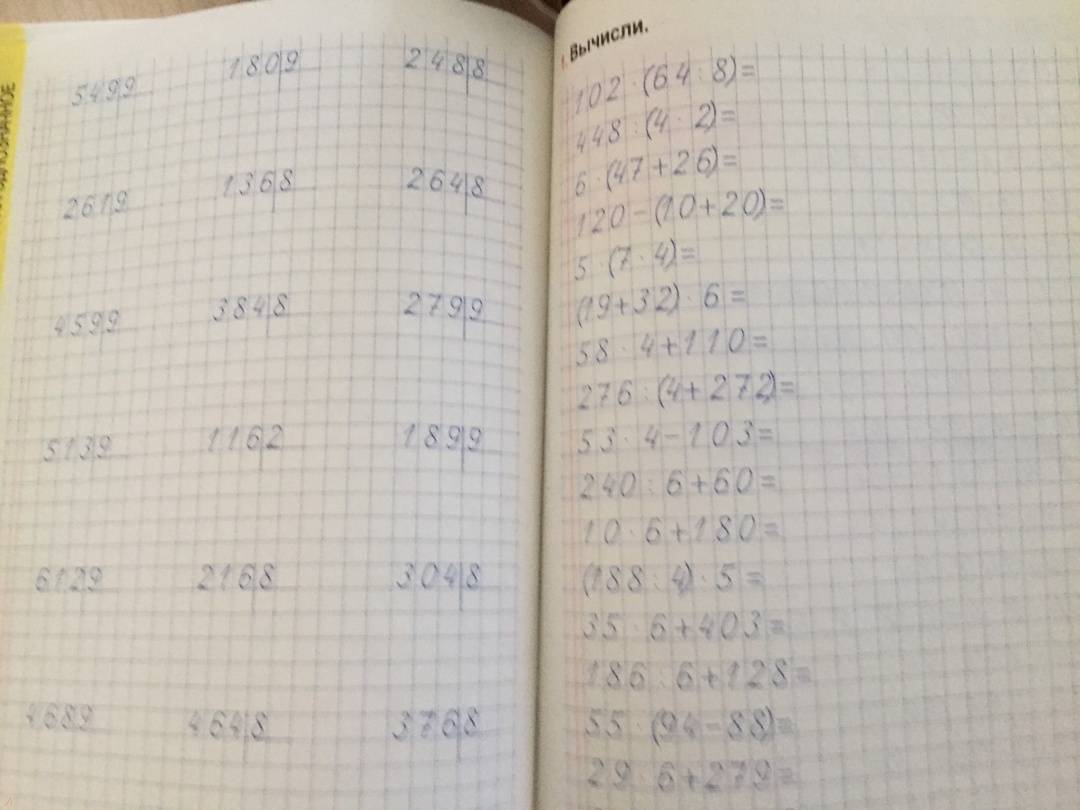 ОДНОЗНАЧНОЕ
549|9 180|9 248|8
261|9 136|8 264|8
459|9 384|8 279|9
513|9 116|2 189|9
612|9 216|8 304|8
468|9 464|8 376|8
Вычисли.
102 · (64 : 8) =
448 : (4 · 2) =
6 · (47 + 26) =
120 - (10 + 20) =
5 · (7 · 4) =
(19 + 32) · 6 =
58 · 4 + 110 =
276 : (4 + 272) =
53 · 4 - 103 =
240 : 6 + 60 =
10 · 6 + 180 =
(188 : 4) · 5 =
35 · 6 + 403 =
186 : 6 + 128 =
55 · (94 - 88) =
29 · 6 + 279 =